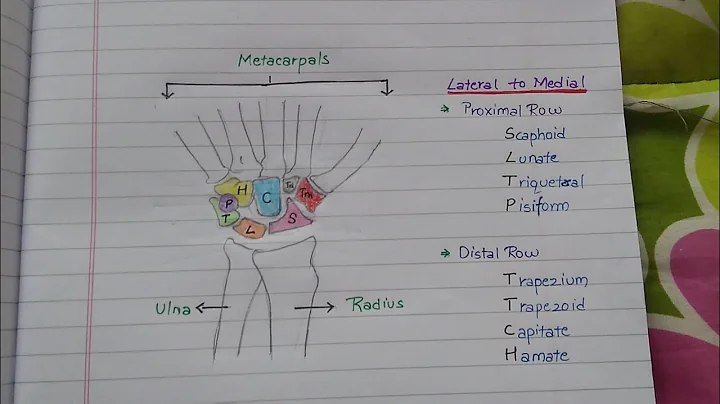 Metacarpals
H
C
Td
Tm
P
T
L
S
Ulna
Radius
Lateral to Medial
Proximal Row
Scaphoid
Lunate
Triquetral
Pisiform
Distal Row
Trapezium
Trapezoid
Capitate
Hamate